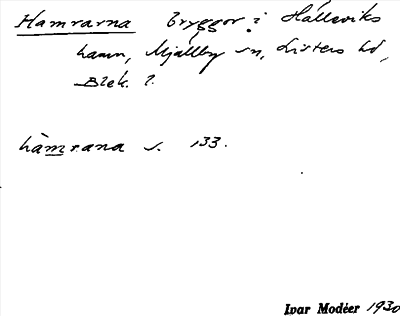 Hamrarna Bryggor i Hälleviks
hamn, Mjällby sn, Listers hd,
Blek. l.
hàmrana s. 133.
Ivar Modéer 1930